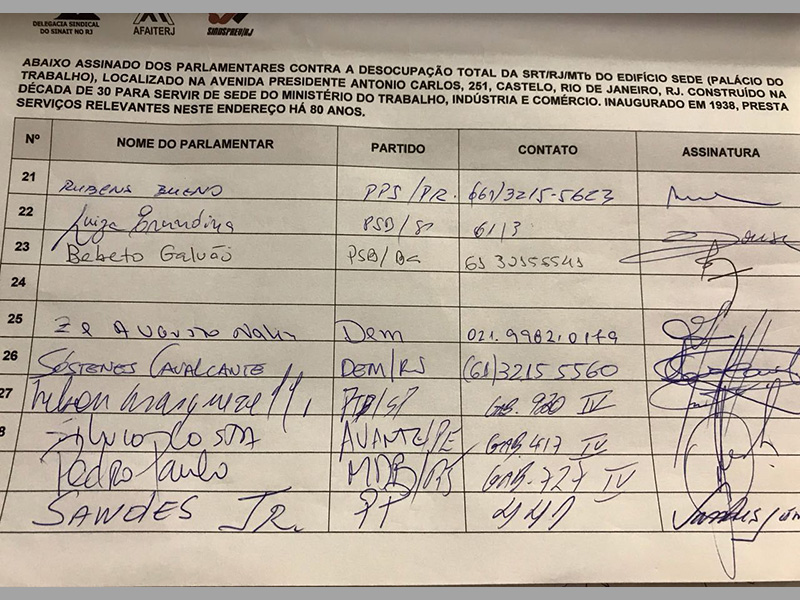 DELEGACIA SINDICAL
DO SINAIT NO RJ
AFAITERJ
SINDSPREV/RJ
ABAIXO ASSINADO DOS PARLAMENTARES CONTRA A DESOCUPAÇÃO TOTAL DA SRT/RJ/MTb DO EDIFÍCIO SEDE (PALÁCIO DO
TRABALHO), LOCALIZADO NA AVENIDA PRESIDENTE ANTONIO CARLOS, 251, CASTELO, RIO DE JANEIRO, RJ. CONSTRUÍDO NA
DÉCADA DE 30 PARA SERVIR DE SEDE DO MINISTÉRIO DO TRABALHO, INDÚSTRIA E COMÉRCIO. INAUGURADO EM 1938, PRESTA
SERVIÇOS RELEVANTES NESTE ENDEREÇO HÁ 80 ANOS.
Nº NOME DO PARLAMENTAR PARTIDO CONTATO ASSINATURA
21 RUBENS BUENO PPS/PR. (61)3215-5623
22 Luiza Erundina 61/3
23 Bebeto Galvão PSB/Ba 61 32155541
24
25 Zé Augusto Dem 021.99821.0149
26 SÓSTENES CAVALCANTE DEM/RJ (61)3215 5560
27 GAB. 920 IV
8 Silvio COSTA AVANTE/PE GAB. 417 IV
Pedro Paulo MDB/RJ GAB. 727 IV
SANDES JR. PP 441